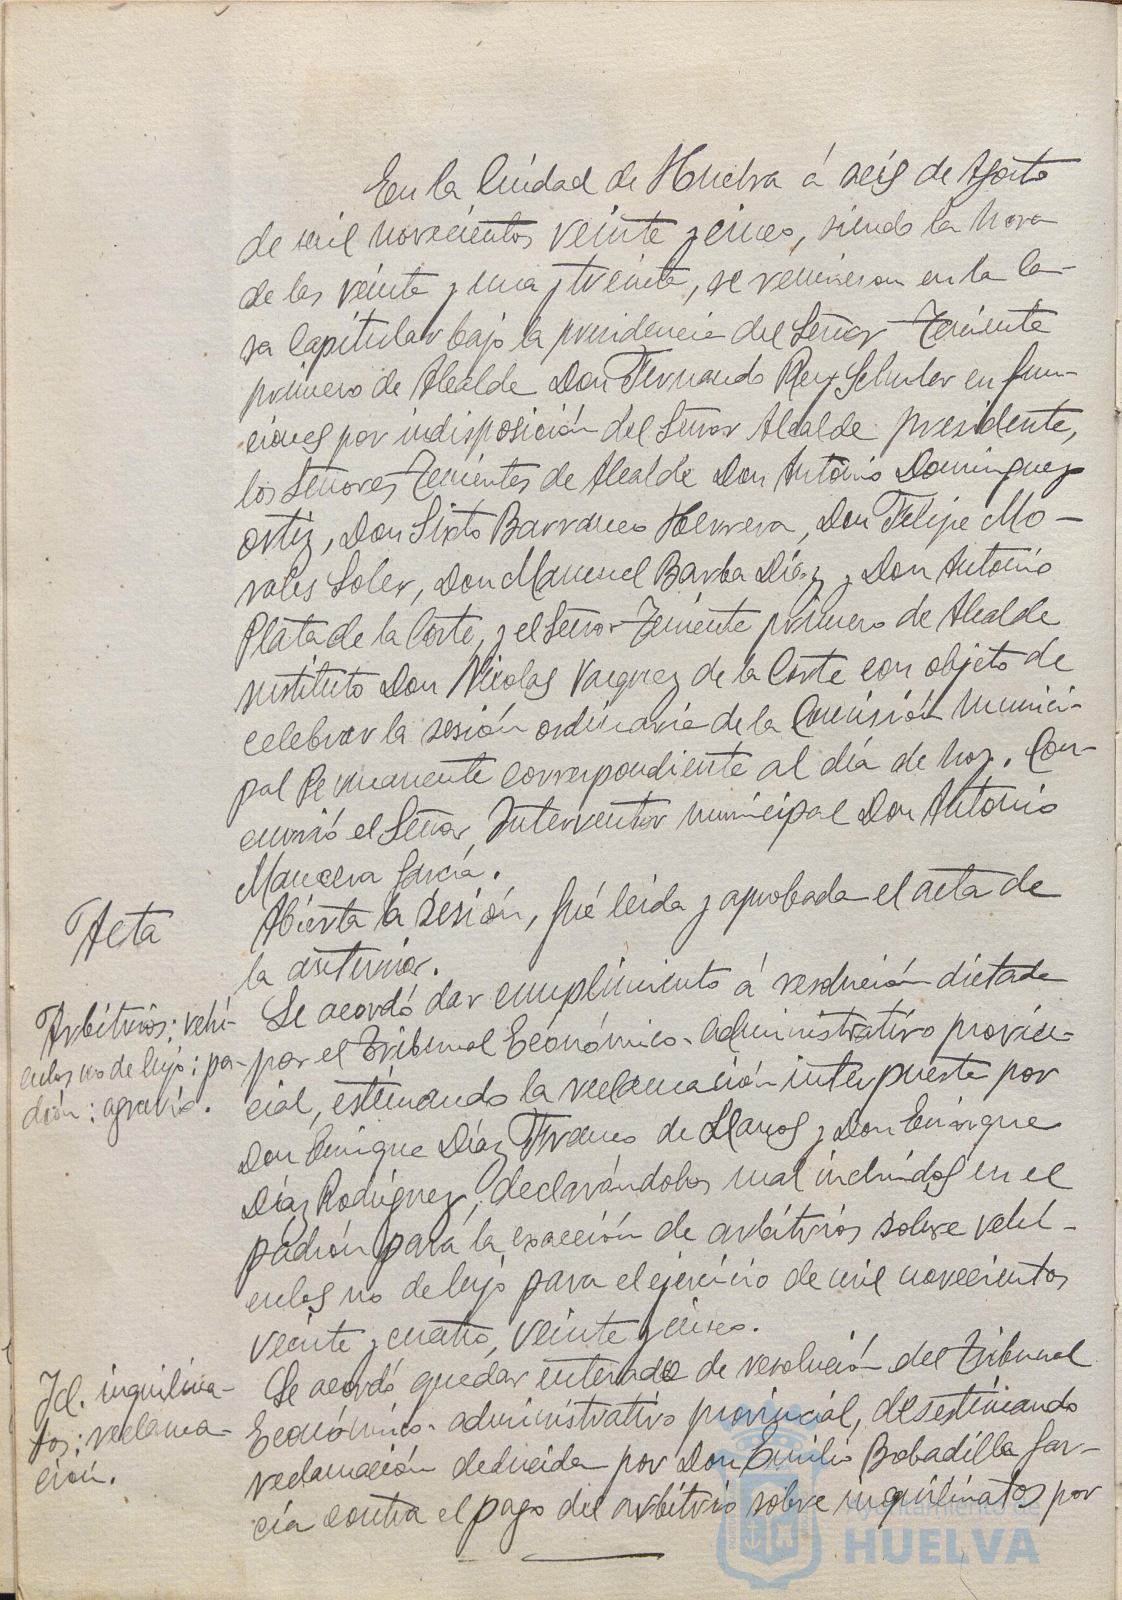 En la Ciudad de Huelva á seis de Agosto
de mil novecientos veinte y cinco, siendo la hora
de las veinte y una y treinta, se reunieron en la Ca-
sa Capitular bajo la presidencia del Señor Teniente
primero de Alcalde Don Fernando Rey Schuler en fun-
ciones por indisposición del Señor Alcalde presidente,
los Señores Tenientes de Alcalde Don Antonio Dominguez
Ortiz, Don Sixto Barranco Herrera, Don Felipe Mo-
rales Soler, Don Manuel Barba Diaz y Don Antonio
Plata de la Corte, y el Señor Teniente primero de Alcalde
sustituto Don Nicolas Vazquez de la Corte con objeto de
celebrar la sesión ordinaria de la Comisión Munici-
pal Permanente correspondiente al día de hoy. Con-
currió el Señor Interventor municipal Don Antonio
Mancera García.
Acta
Abierta la sesión, fué leida y aprobada el acta de
la anterior.
Arbitrios: vehí-
culos no de lujo: pa-
drón: agravio.
Se acordó dar cumplimiento á resolución dictada
por el Tribunal Económico-administrativo provin-
cial, estimando la reclamación interpuesta por
Don Enrique Díaz Franco de Llanos y Don Enrique
Díaz Rodríguez, declarándolos mal incluídos en el
padrón para la exacción de arbitrios sobre vehí-
culos no de lujo para el ejercicio de mil novecientos
veinte y cuatro, veinte y cinco.
Id. inquilina-
tos: reclama-
ción.
Se acordó quedar enterada de resolución del Tribunal
Económico-administrativo provincial, desestimando
reclamación deducida por Don Emilio Bobadilla Gar-
cía contra el pago del arbitrio sobre inquilinatos por
Ayuntamiento de
HUELVA